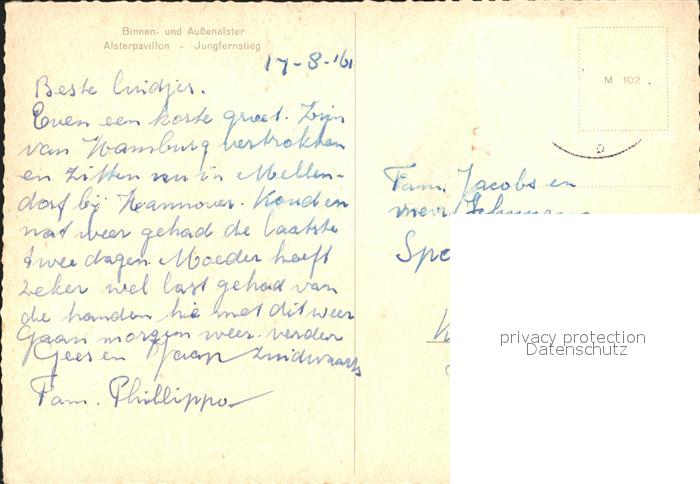 Binnen- und Außenalster
Alsterpavillon - Jungfernstieg
17-8-'61
Beste luidjes.
Even een korte groet. Zijn
van Hamburg vertrokken
en zitten nu in Mellen-
dorf bij Hannover. Koud en
nat weer gehad de laatste
twee dagen. Moeder heeft
zeker wel last gehad van
de handen hè met dit weer
Gaan morgen weer verder
Gees en Jaap zuidwaarts
Fam. Phillippo
M 102
Fam. Jacobs en
mevr.
privacy protection
Datenschutz